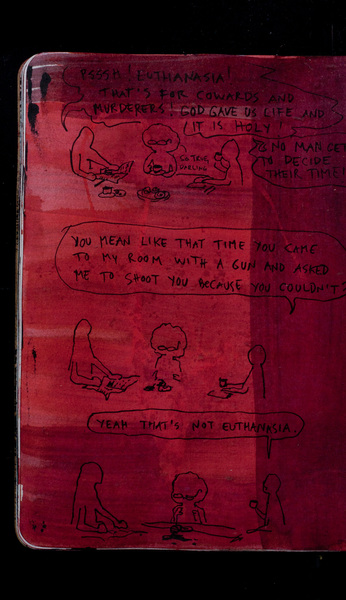 PSSSH! EUTHANASIA!
THAT'S FOR COWARDS AND
MURDERERS! GOD GAVE US LIFE AND
IT IS HOLY!
SO TRUE
DARLING
NO MAN GET
TO DECIDE
THEIR TIME!
YOU MEAN LIKE THAT TIME YOU CAME
TO MY ROOM WITH A GUN AND ASKED
ME TO SHOOT YOU BECAUSE YOU COULDN'T?
YEAH THAT'S NOT EUTHANASIA